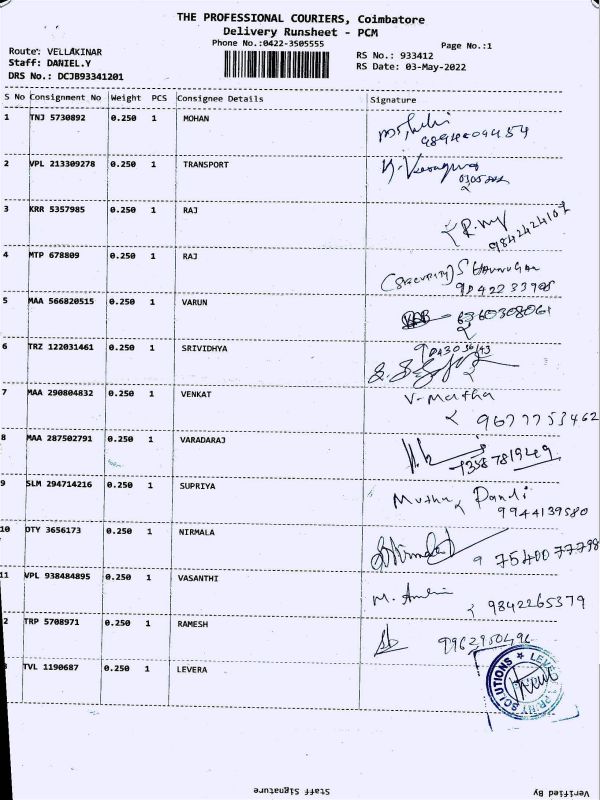 THE PROFESSIONAL COURIERS, Coimbatore
Delivery Runsheet - PCM
Phone No.:0422-3505555
Page No.:1
Route: VELLAKINAR
Staff: DANIEL.Y
DRS No.: DCJB93341201
RS No.: 933412
RS Date: 03-May-2022
S No Consignment No Weight PCS Consignee Details Signature
1 TNJ 5730892 0.250 1 MOHAN
2 VPL 213309278 0.250 1 TRANSPORT
3 KRR 5357985 0.250 1 RAJ R.
9842424107
4 MTP 678809 0.250 1 RAJ (Security)
9042233998
5 MAA 566820515 0.250 1 VARUN 6360308061
6 TRZ 122031461 0.250 1 SRIVIDHYA
7 MAA 290804832 0.250 1 VENKAT V-Martha
9677753462
8 MAA 287502791 0.250 1 VARADARAJ
7358781949
9 SLM 294714216 0.250 1 SUPRIYA Muthu Pandi
9944139580
10 DTY 3656173 0.250 1 NIRMALA Nirmala
9 7540077798
11 VPL 938484895 0.250 1 VASANTHI M.
9842265379
2 TRP 5708971 0.250 1 RAMESH
9962950496
TVL 1190687 0.250 1 LEVERA
SOLUTIONS ★ LEVE
Staff Signature
Verified By